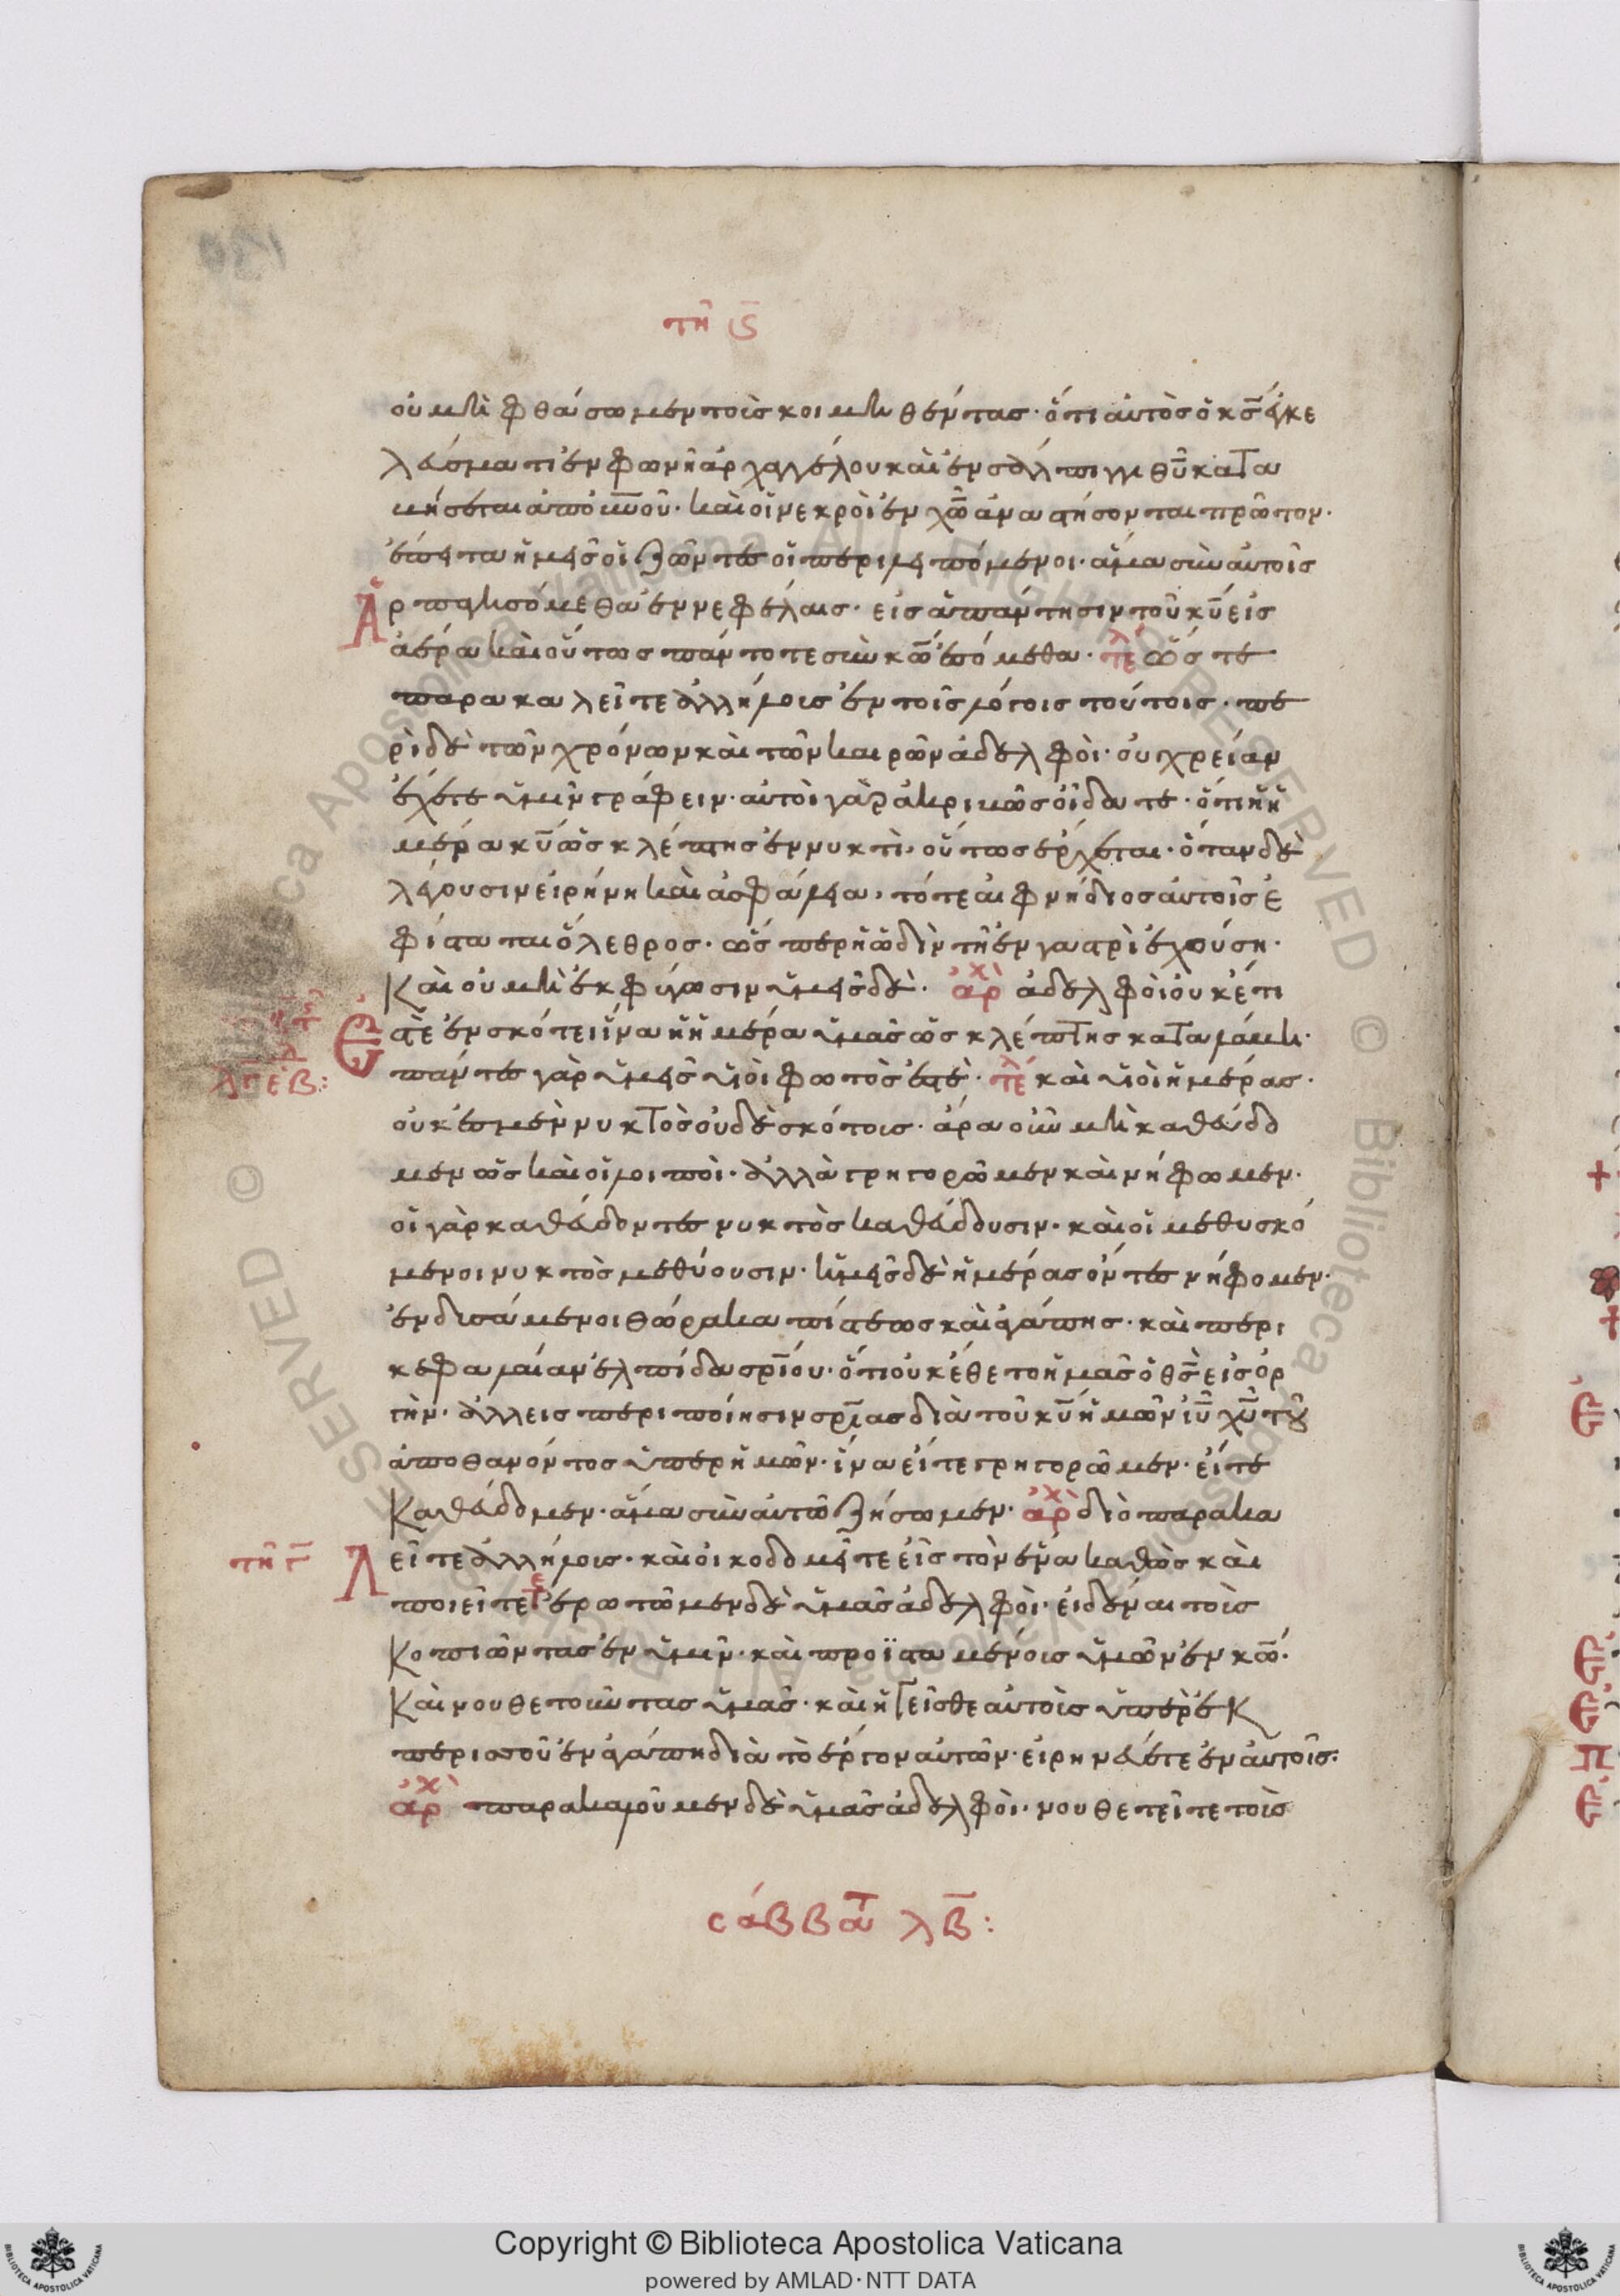 τῆ ς̅
οὐ μὴ φθάσωμεν τοὺς κοιμηθέντας· ὅτι αὐτὸς ὁ κ̅ς̅ ἐν κε
λεύσματι ἐν φωνῆ ἀρχαγγέλου καὶ ἐν σάλπιγγι θ̅υ̅ κατα
βήσεται ἀπ' οὐ̅νοῦ· καὶ οἱ νεκροὶ ἐν χ̅ω̅ ἀναστήσονται πρῶτον·
ἔπειτα ἡμεῖς οἱ ζῶντες οἱ περιλειπόμενοι· ἅμα σὺν αὐτοῖς
Ἁρπαγησόμεθα ἐν νεφέλαις· εἰς ἀπάντησιν τοῦ κ̅υ̅ εἰς
ἀέρα καὶ οὕτως πάντοτε σὺν κ̅ω̅ ἐσόμεθα· τελ ὥστε
παρακαλεῖτε ἀλλήλους ἐν τοῖς λόγοις τούτοις· πε
ρὶ δὲ τῶν χρόνων καὶ τῶν καιρῶν ἀδελφοὶ· οὐ χρείαν
ἔχετε ὑμῖν γράφειν· αὐτοὶ γὰρ ἀκριβῶς οἴδατε· ὅτι ἡ ἡ
μέρα κ̅υ̅ ὡς κλέπτης ἐν νυκτὶ· οὕτως ἔρχεται· ὅταν δὲ
λέγουσιν εἰρήνη καὶ ἀσφάλεια, τότε αἰφνήδιος αὐτοῖς ἐ
φίσταται ὄλεθρος· ὥσπερ ἡ ὠδὶν τῆ ἐν γαστρὶ ἐχούση·
Καὶ οὐ μὴ ἐκφύγωσιν ὑμεῖς δὲ· ἀρχ ἀδελφοὶ οὐκ ἔτι
Ἐστὲ ἐν σκότει ἵνα ἡ ἡμέρα ὑμᾶς ὡς κλέπτης καταλάβη·
πάντες γὰρ ὑμεῖς υἱοὶ φωτός ἐστὲ· τελ καὶ υἱοὶ ἡμέρας·
οὐκ ἐσμὲν νυκτὸς οὐδὲ σκότους· ἄρα οὖν μὴ καθεύδο
μεν ὡς καὶ οἱ λοιποὶ· ἀλλὰ γρηγορῶμεν καὶ νήφωμεν·
οἱ γὰρ καθεύδοντες νυκτὸς καθεύδουσιν· καὶ οἱ μεθυσκό
μενοι νυκτὸς μεθύουσιν· ἡμεῖς δὲ ἡμέρας ὄντες νήφομεν·
ἐνδυσάμενοι θώρακα πίστεως καὶ ἀγάπης· καὶ περι
κεφαλαίαν ἐλπίδα σρ̅ίου· ὅτι οὐκ ἔθετο ἡμᾶς ὁ θ̅ς̅ εἰς ὀρ
γὴν· ἀλλ' εἰς περιποίησιν σρ̅ίας διὰ τοῦ κ̅υ̅ ἡμῶν ἰ̅υ̅ χ̅υ̅ τοῦ
ἀποθανόντος ὑπὲρ ἡμῶν· ἵνα εἴτε γρηγορῶμεν· εἴτε
Καθεύδομεν· ἅμα σὺν αὐτῶ ζήσωμεν· ἀρχ διὸ παρακα
Λεῖτε ἀλλήλους· καὶ οἰκοδομεῖτε εἷς τὸν ἕνα καθὼς καὶ
ποιεῖτε τε ἐρωτῶμεν δὲ ὑμᾶς ἀδελφοὶ· εἰδέναι τοὺς
Κοπιῶντας ἐν ὑμῖν· καὶ προϊσταμένους ὑμῶν ἐν κ̅ω̅·
Καὶ νουθετοῦντας ὑμᾶς· καὶ ἡγεῖσθε αὐτοὺς ὑπὲρ ἐκ
περισσοῦ ἐν ἀγάπη διὰ τὸ ἔργον αὐτῶν· εἰρηνεύετε ἐν αὐτοῖς·
ἀρχ παρακαλοῦμεν δὲ ὑμᾶς ἀδελφοὶ· νουθετεῖτε τοὺς
τῆ γ̅
σάββατ λ̅β̅: